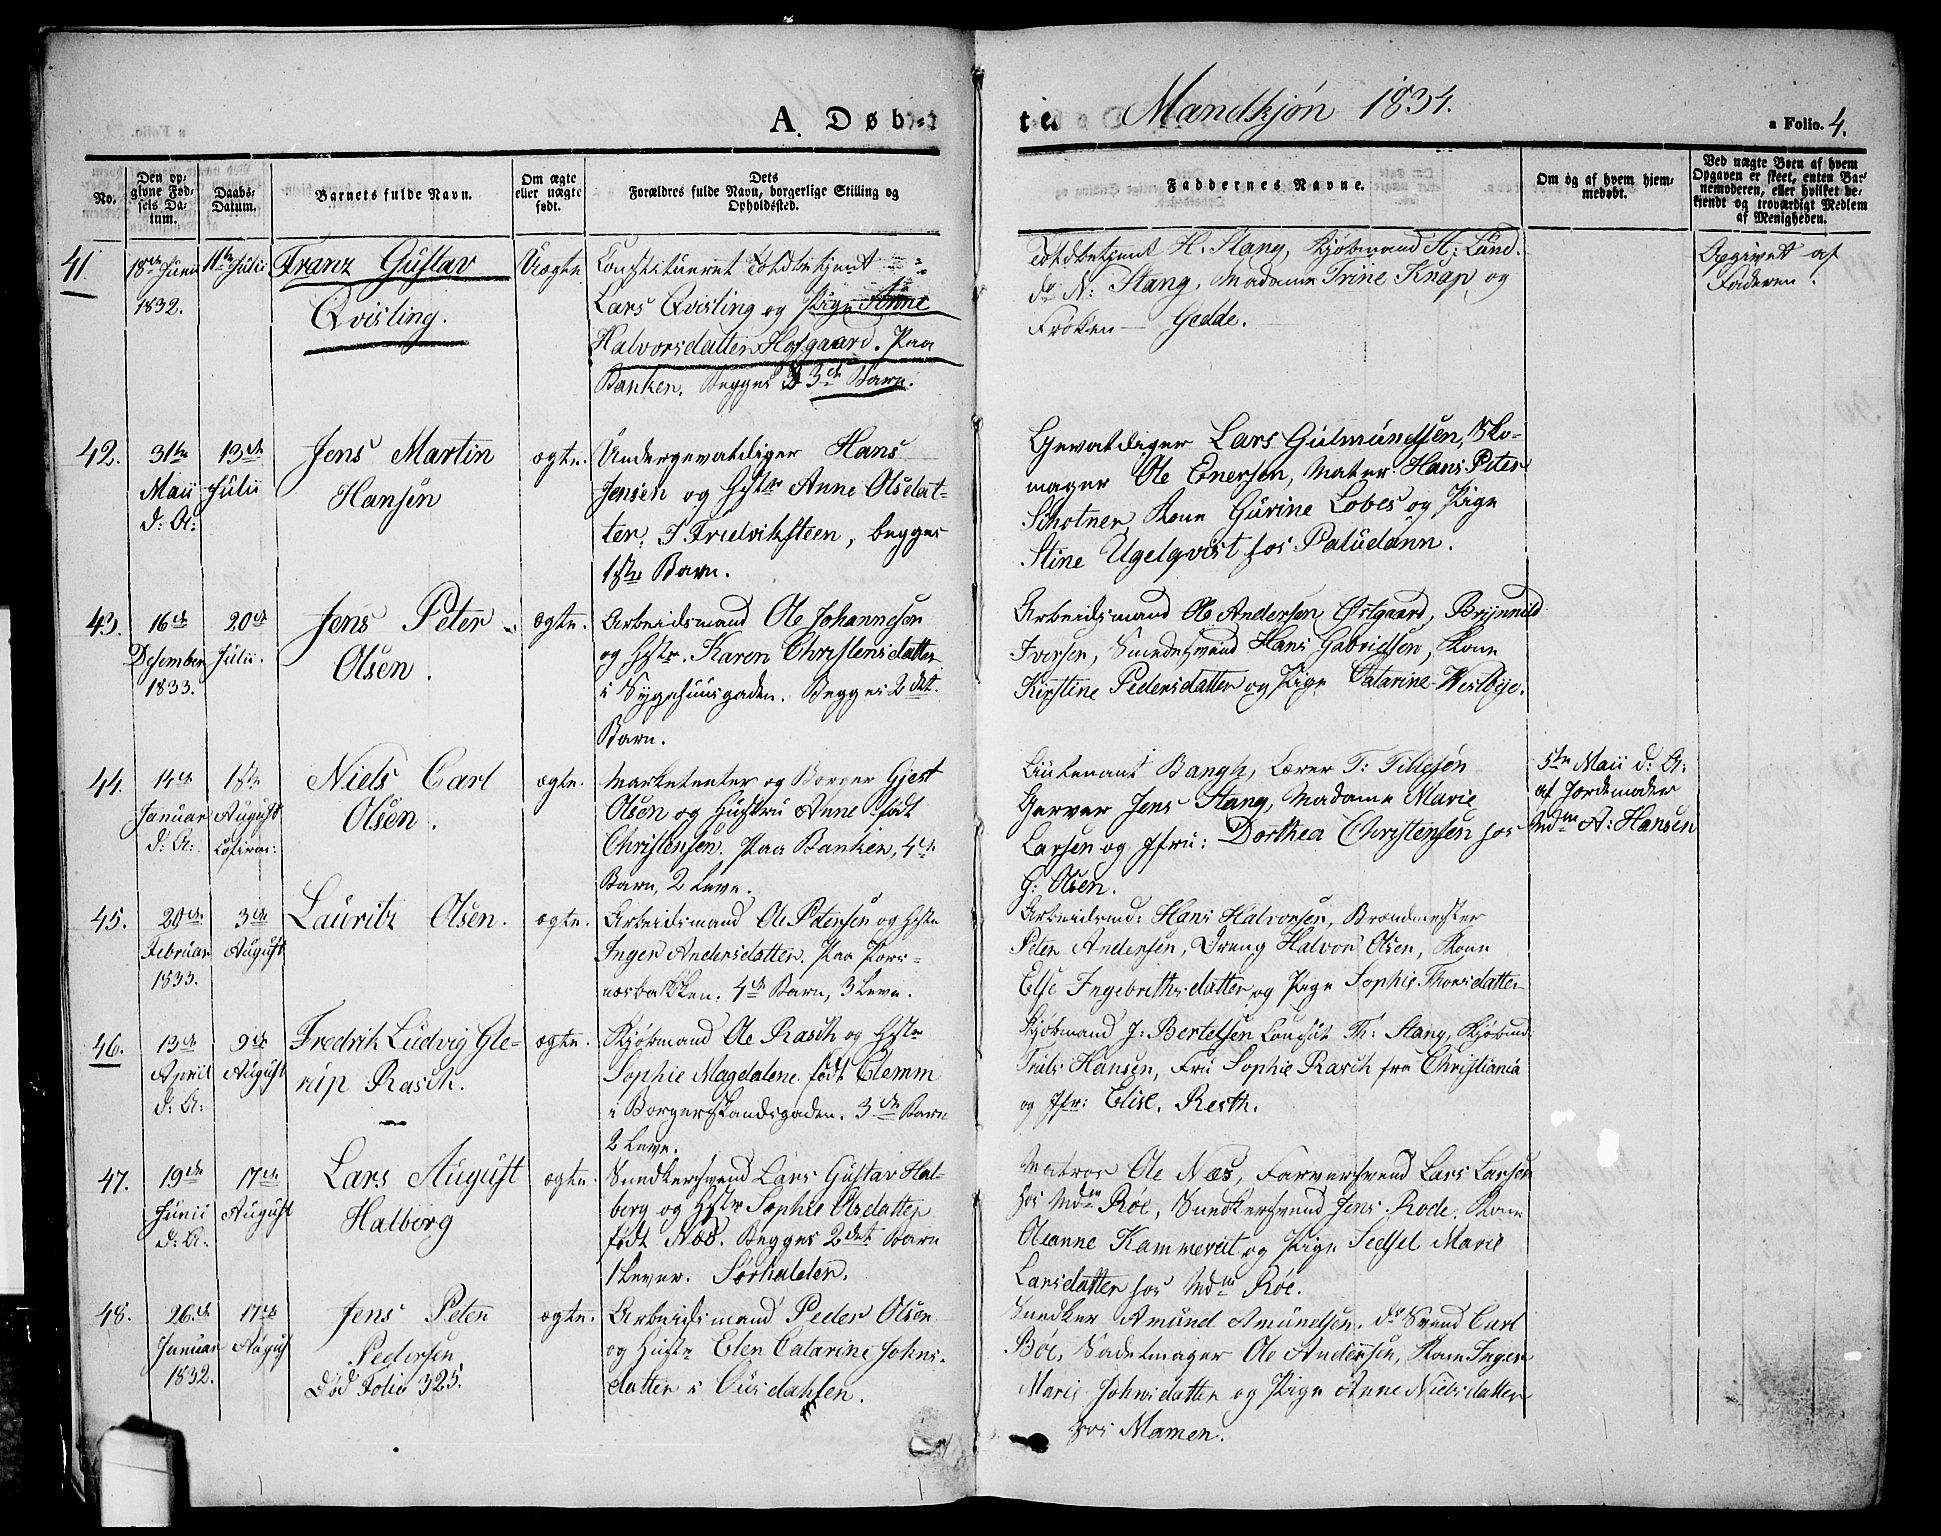 A. Døbte. Mandkjøn 1834.
a Folio. 4.
No.
Den opgivne Fødsels Datum.
Daabs-Datum.
Barnets fulde Navn.
Om ægte eller uægte født.
Dets Forældres fulde Navn, borgerlige Stilling og Opholdssted.
Faddernes Navne.
Om og af hvem hjemmedøbt.
Ved uægte Børn af hvem Opgaven er skeet, enten Barnemoderen, eller hvilket bekjendt og troværdigt Medlem af Menigheden.
41.
18de Junii
1832.
11te Julii
Franz Gustav
Qvisling.
Uægte
Constitueret Toldbetjent
Lars Qvisling og Pige Anne
Halvorsdatter Hofgaard. Paa
Banken. Begges 3de Barn.
Toldbetjent H. Stang, Kjøbmand H: Lund.
do N: Stang, Madame Trine Knap, og
Frøken — Gedde.
Opgivet af
Faderen.
42.
31te
Maii
d: A:
13de
Julii
Jens Martin
Hansen
ægte.
Undergevaldiger Hans
Jensen og Hstr Anne Olsdat-
ter. I Fredriksteen, begges
1ste Barn.
Gevaldiger Lars Gulmundsen, Sko-
mager Ole Enersen, Mater: Hans Peter
Schotner, Kone Gurine Lobes og Pige
Stine Ugelqvist hos Paludann.
43.
16de
Desember
1833.
20de
Julii.
Jens Peter
Olsen.
ægte.
Arbeidsmand Ole Johannesen
og Hstr. Karen Christensdatter
i Sygehuusgaden. Begges 2det.
Barn.
Arbeidsmand Ole Andersen Østgaard, Brynnild
Iversen, Smedesvend Hans Gabrielsen, Kone
Kirstine Pedersdatter og Pige Catarine Westbye.
44.
14de
Januar
d: A:
1ste
August
Niels Carl
Olsen.
ægte.
Marketenter og Borger Gjest
Olsen og Hustru Anne født
Christensen. Paa Banken, 4de
Barn, 2 leve.
Liutenant Bangh, Lærer T: Tillesen
Garver Jens Stang, Madame Marie
Larsen og Jfru: Dorthea Christensen hos
G: Olsen.
5te Maii d: A:
af Jordemoder
Mdm A: Hansen
45.
20de
Februar
1833.
3de
August
Lauritz Olsen.
ægte.
Arbeidsmand Ole Petersen og Hstr
Inger Andersdatter. Paa Pors-
næsbakken. 4de Barn, 3 leve.
Arbeidsmd: Hans Halvorsen, Brandmester
Peter Andersen, Dreng Halvor Olsen, Kone
Else Ingebrethsdatter og Pige Sophie Thorsdatter
46.
13de
April
d: A:
9de
August
Fredrik Ludvig Gle-
rup Rasch.
ægte.
Kjøbmand Ole Rasch og Hstr
Sophie Magdalene født Clemm
i Borgerstandsgaden. 3de Barn
2 leve.
Kjøbmand J: Bertelsen, Consul Th: Stang, Kjøbmd
Truls Hansen, Fru Sophie Rasch fra Christiania
og Jfr: Elise. Resth.
47.
19de
Junii
d: A:
17de
August
Lars August
Halborg
ægte.
Snedkersvend Lars Gustav Hal-
borg og Hstr Sophie Olsdatter
født Næs. Begges 2det Barn
1 lever. Sørhalden.
Matros Ole Næs, Farversvend Lars Larsen
hos Mdm Røe, Snedkersvend Jens Rode. Kone
Oleanne Kammerut og Pige Sedsel Marie
Larsdatter hos Mdm Røe.
48.
26de
Januar
1832.
17de
August
Jens Peter
Pedersen
Død Folio 325.
ægte.
Arbeidsmand Peder Olsen
og Hustr Elen Catarine Johns-
datter i Ousdahlen.
Snedker Amund Amundsen. do Svend Carl
Bøe, Sadelmager Ole Andersen, Kone Inger
Marie Johnsdatter og Pige Anne Nielsdatter
hos Mamen.